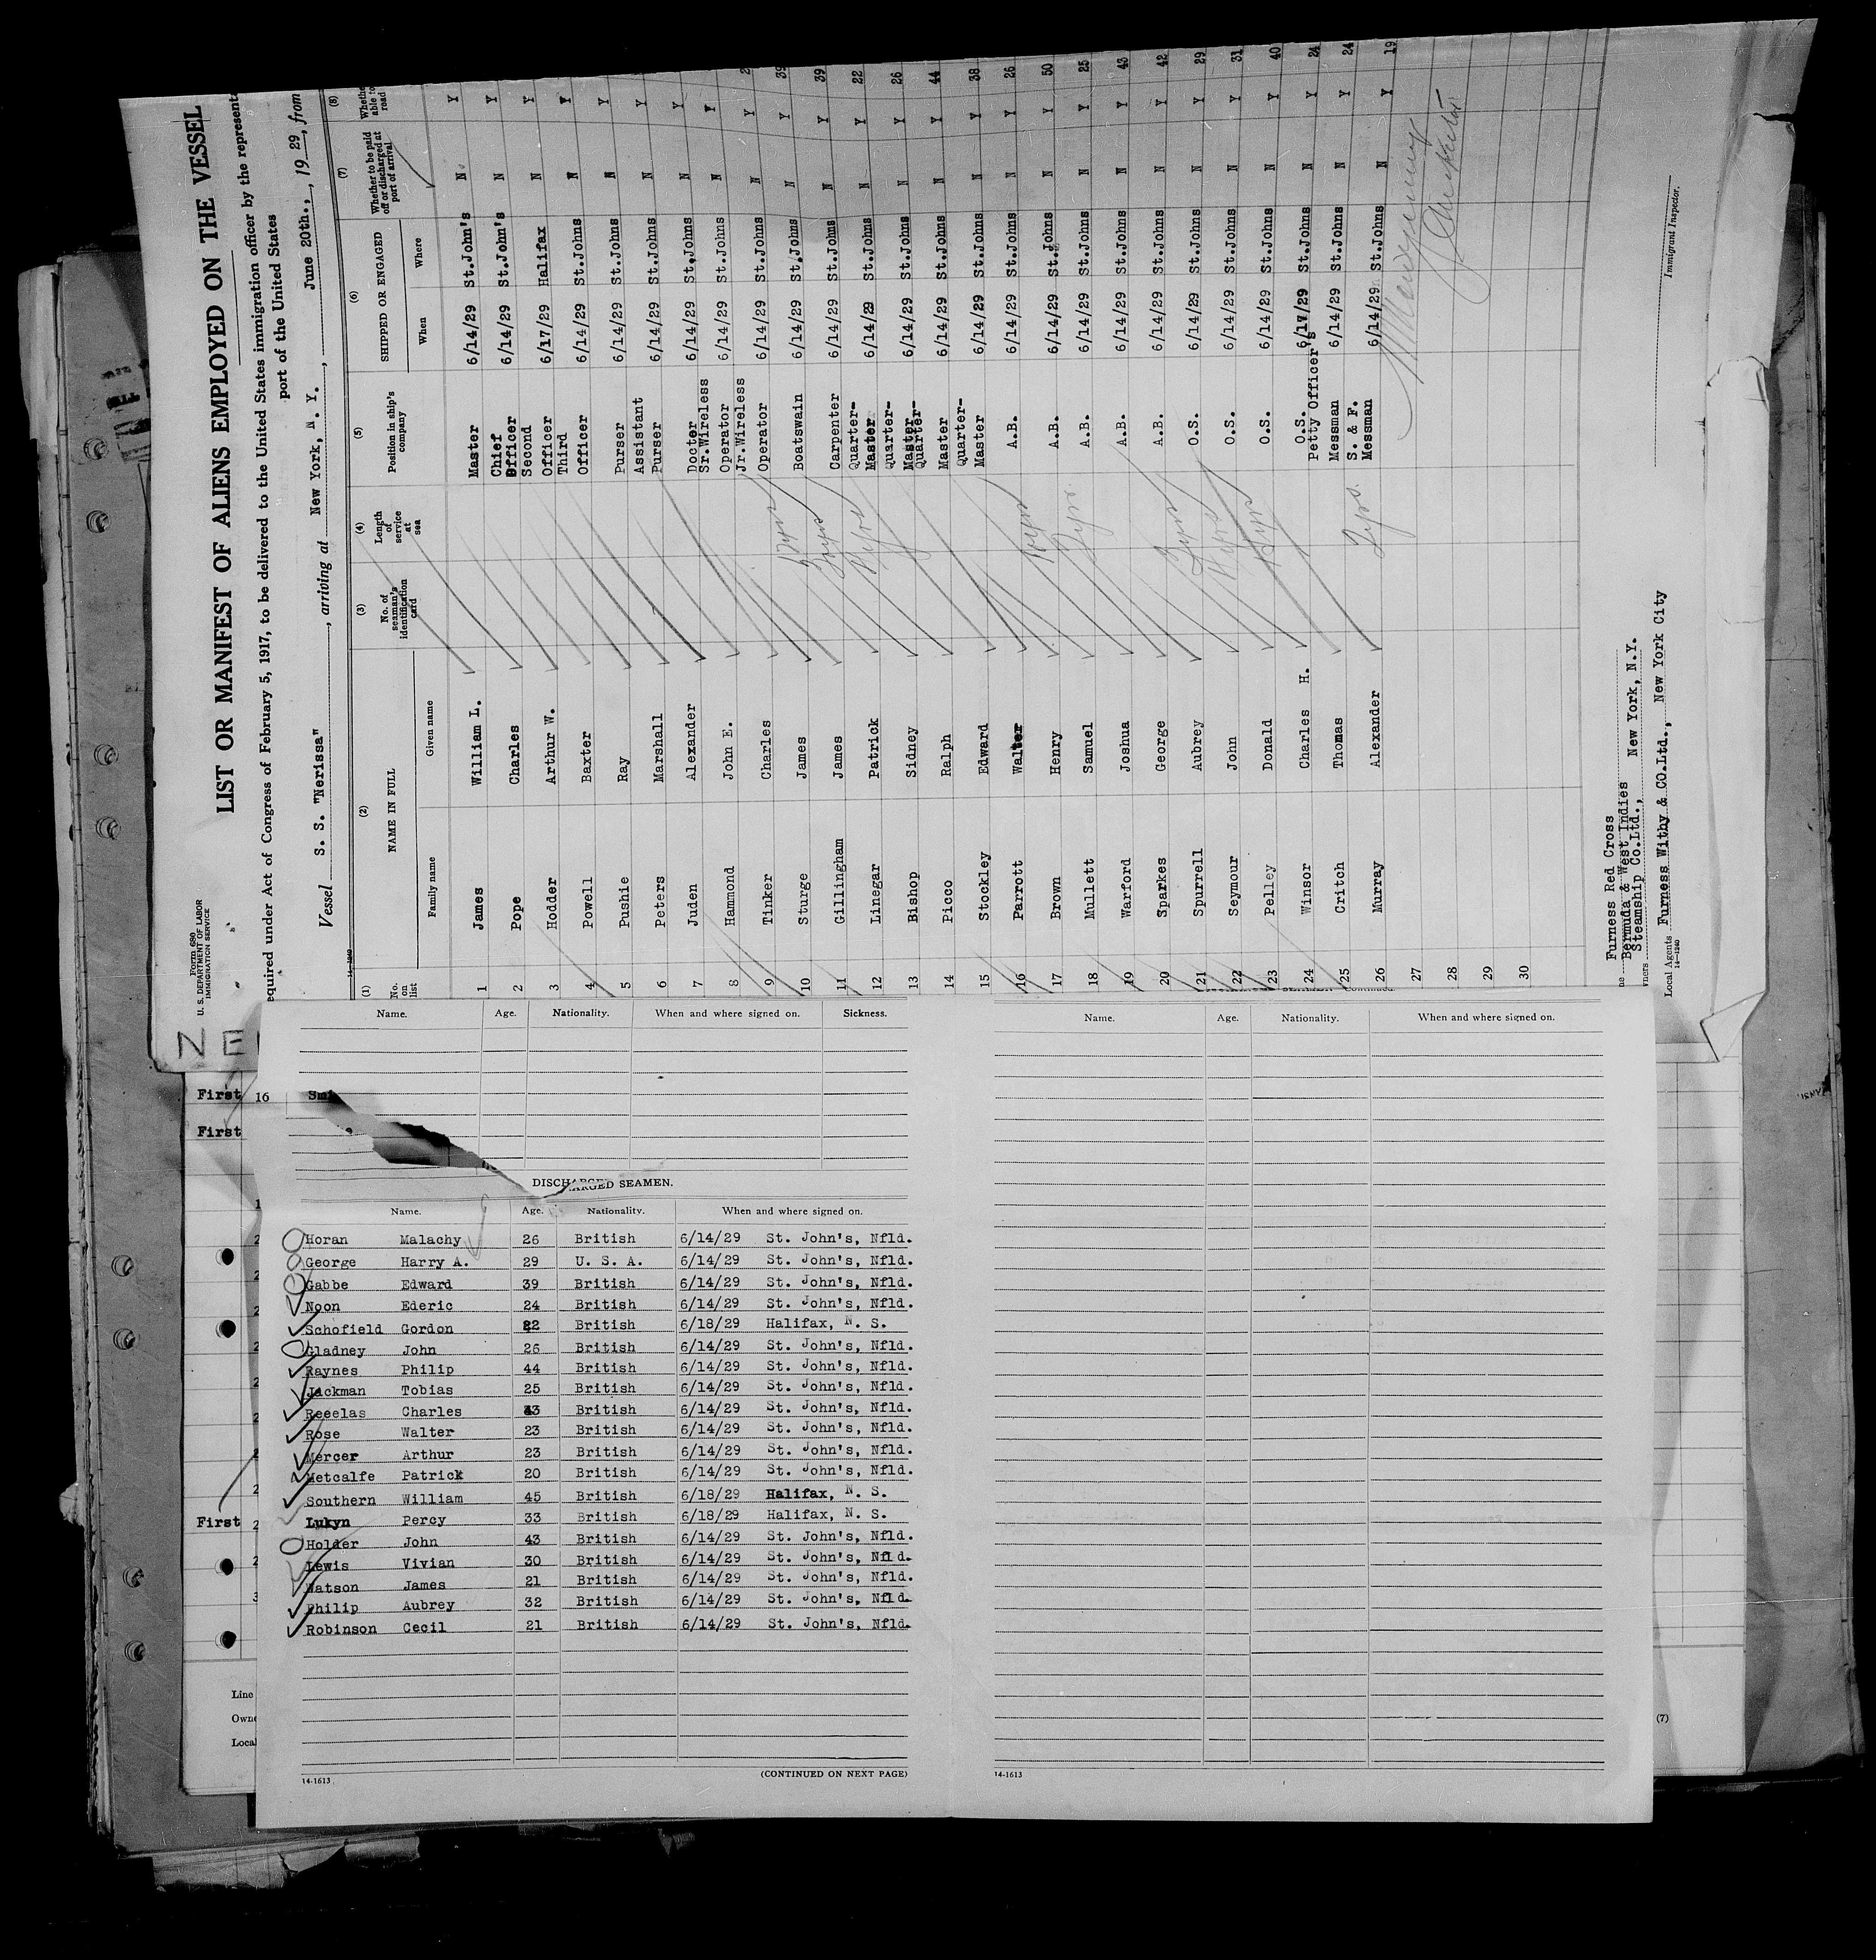 Form 680
U. S. DEPARTMENT OF LABOR
IMMIGRATION SERVICE
LIST OR MANIFEST OF ALIENS EMPLOYED ON THE VESSEL
equired under Act of Congress of February 5, 1917, to be delivered to the United States immigration officer by the represent
port of the United States
Vessel S. S. "Nerissa", arriving at New York, N. Y., June 20th., 1929, from
14-1240
(1) (2) (3) (4) (5) (6) (7) (8)
No. on list NAME IN FULL No. of seaman's identification card Length of service at sea Position in ship's company SHIPPED OR ENGAGED Whether to be paid off or discharged at port of arrival
Family name Given name When Where
1 James William L. Master 6/14/29 St.John's N Y
2 Pope Charles Chief Officer 6/14/29 St.John's N Y
3 Hodder Arthur W. Second Officer 6/17/29 Halifax N Y
4 Powell Baxter Third Officer 6/14/29 St.Johns N Y
5 Pushie Ray Purser 6/14/29 St.Johns N Y
6 Peters Marshall Assistant Purser 6/14/29 St.Johns N Y
7 Juden Alexander Docter 6/14/29 St.Johns N Y
8 Hammond John E. Sr.Wireless Operator 6/14/29 St.Johns N Y
9 Tinker Charles Jr.Wireless Operator 6/14/29 St.Johns N Y
10 Sturge James Boatswain 6/14/29 St.Johns N Y 39
11 Gillingham James Carpenter 6/14/29 St.Johns N Y 39
12 Linegar Patrick Quarter-Master 6/14/29 St.Johns N Y 22
13 Bishop Sidney Quarter-Master 6/14/29 St.Johns N Y 26
14 Picco Ralph Quarter-Master 6/14/29 St.Johns N Y 44
15 Stockley Edward Quarter-Master 6/14/29 St.Johns N Y 38
16 Parrott Walter A.B. 6/14/29 St.Johns N Y 26
17 Brown Henry A.B. 6/14/29 St.Johns N Y 50
18 Mullett Samuel A.B. 6/14/29 St.Johns N Y 25
19 Warford Joshua A.B. 6/14/29 St.Johns N Y 43
20 Sparkes George A.B. 6/14/29 St.Johns N Y 42
21 Spurrell Aubrey O.S. 6/14/29 St.Johns N Y 29
22 Seymour John O.S. 6/14/29 St.Johns N Y 31
23 Pelley Donald O.S. 6/14/29 St.Johns N Y 40
24 Winsor Charles H. O.S. 6/17/29 St.Johns N Y 24
25 Critch Thomas Petty Officer's Messman 6/14/29 St.Johns N Y 24
26 Murray Alexander S. & F. Messman 6/14/29 St.Johns N Y 19
27
28
29
30
Furness Red Cross
Bermuda & West Indies
Steamship Co.Ltd., New York, N.Y.
Local Agents Furness Withy & CO.Ltd., New York City
14-1240
Immigrant Inspector.
First 16
First
First
Line
Owne
Local
(7)
Name. Age. Nationality. When and where signed on. Sickness.
DISCHARGED SEAMEN.
Name. Age. Nationality. When and where signed on.
Horan Malachy 26 British 6/14/29 St. John's, Nfld.
George Harry A. 29 U. S. A. 6/14/29 St. John's, Nfld.
Gabbe Edward 39 British 6/14/29 St. John's, Nfld.
Noon Ederic 24 British 6/14/29 St. John's, Nfld.
Schofield Gordon 22 British 6/18/29 Halifax, N. S.
Gladney John 26 British 6/14/29 St. John's, Nfld.
Raynes Philip 44 British 6/14/29 St. John's, Nfld.
Jackman Tobias 25 British 6/14/29 St. John's, Nfld.
Reeelas Charles 43 British 6/14/29 St. John's, Nfld.
Rose Walter 23 British 6/14/29 St. John's, Nfld.
Mercer Arthur 23 British 6/14/29 St. John's, Nfld.
Metcalfe Patrick 20 British 6/14/29 St. John's, Nfld.
Southern William 45 British 6/18/29 Halifax, N. S.
Lukyn Percy 33 British 6/18/29 Halifax, N. S.
Holder John 43 British 6/14/29 St. John's, Nfld.
Lewis Vivian 30 British 6/14/29 St. John's, Nfld.
Watson James 21 British 6/14/29 St. John's, Nfld.
Philip Aubrey 32 British 6/14/29 St. John's, Nfld.
Robinson Cecil 21 British 6/14/29 St. John's, Nfld.
14-1613
(CONTINUED ON NEXT PAGE)
Name. Age. Nationality. When and where signed on.
14-1613